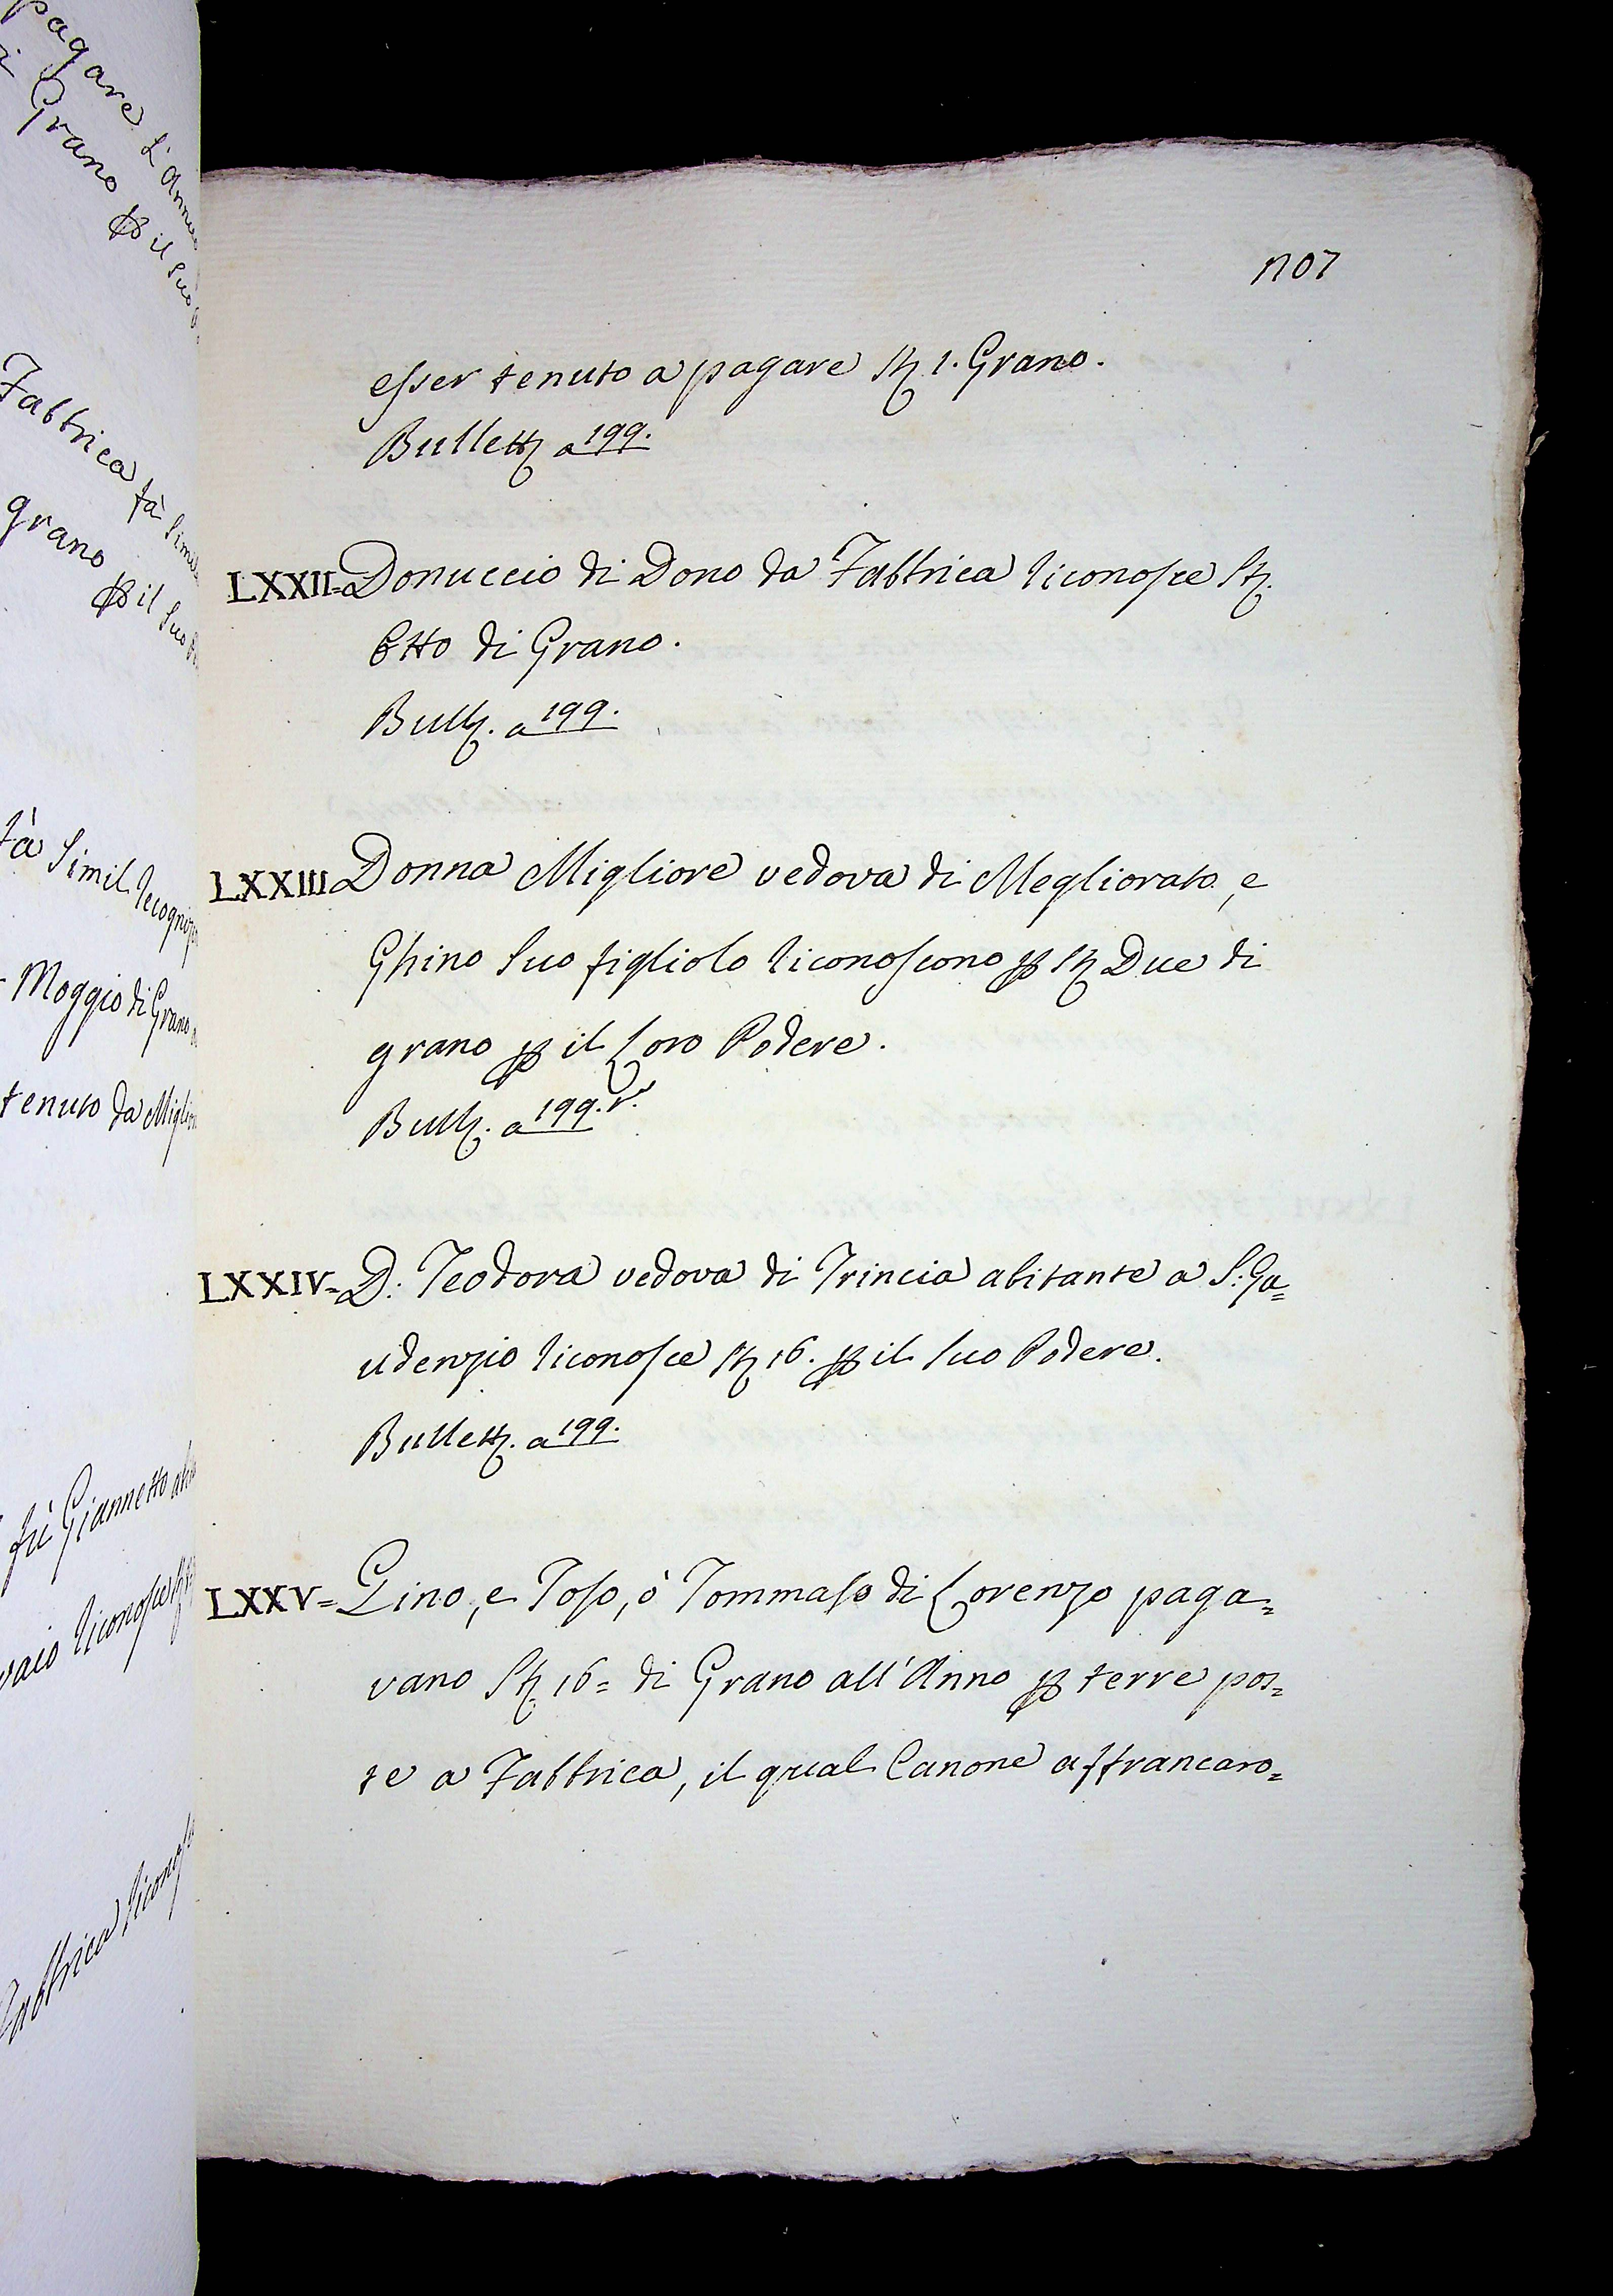 pagare L'Annuo
Grano p il suo
Fabbrica fà Simil
grano p il suo
fà Simil recogniz
Moggio di Grano
tenuto da Miglior
fù Giannetto
riconosce
Fabbrica ricono
1107
esser tenuto a pagare St 1. Grano.
Bullett a 199.
LXXII= Donuccio di Dono da Fabbrica riconosce St.
Otto di Grano.
Bull. a 199.
LXXIII Donna Migliore vedova di Megliorato, e
Ghino Suo figliolo riconoscono p St Due di
grano p il Loro Podere.
Bull. a 199. r.
LXXIV= D: Teodora vedova di Trincia abitante a S: Ga=
udenzio riconosce St 16. p il suo Podere.
Bullett. a 199.
LXXV= Gino, e Toso, ò Tommaso di Lorenzo paga=
vano St. 16= di Grano all'Anno p terre pos=
te a Fabbrica, il qual Canone affrancaro=